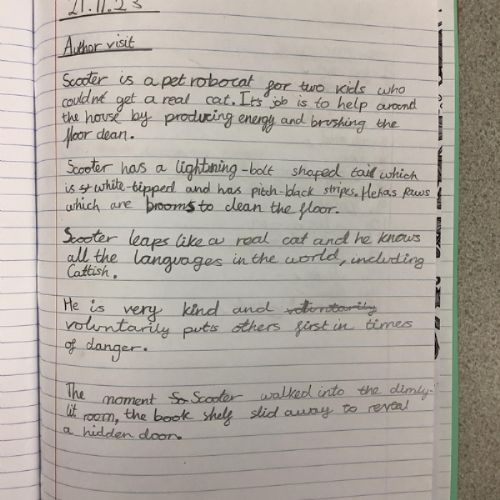 21.11.23
Author visit
Scooter is a pet robocat for two kids who
couldn't get a real cat. Its job is to help around
the house by producing energy and brushing the
floor clean.
Scooter has a lightning-bolt shaped tail which
is white-tipped and has pitch-black stripes. He has paws
which are brooms to clean the floor.
Scooter leaps like a real cat and he knows
all the languages in the world, including
Cattish.
He is very kind and voluntarily
voluntarily puts others first in times
of danger.
The moment So Scooter walked into the dimly-
lit room, the book shelf slid away to reveal
a hidden door.